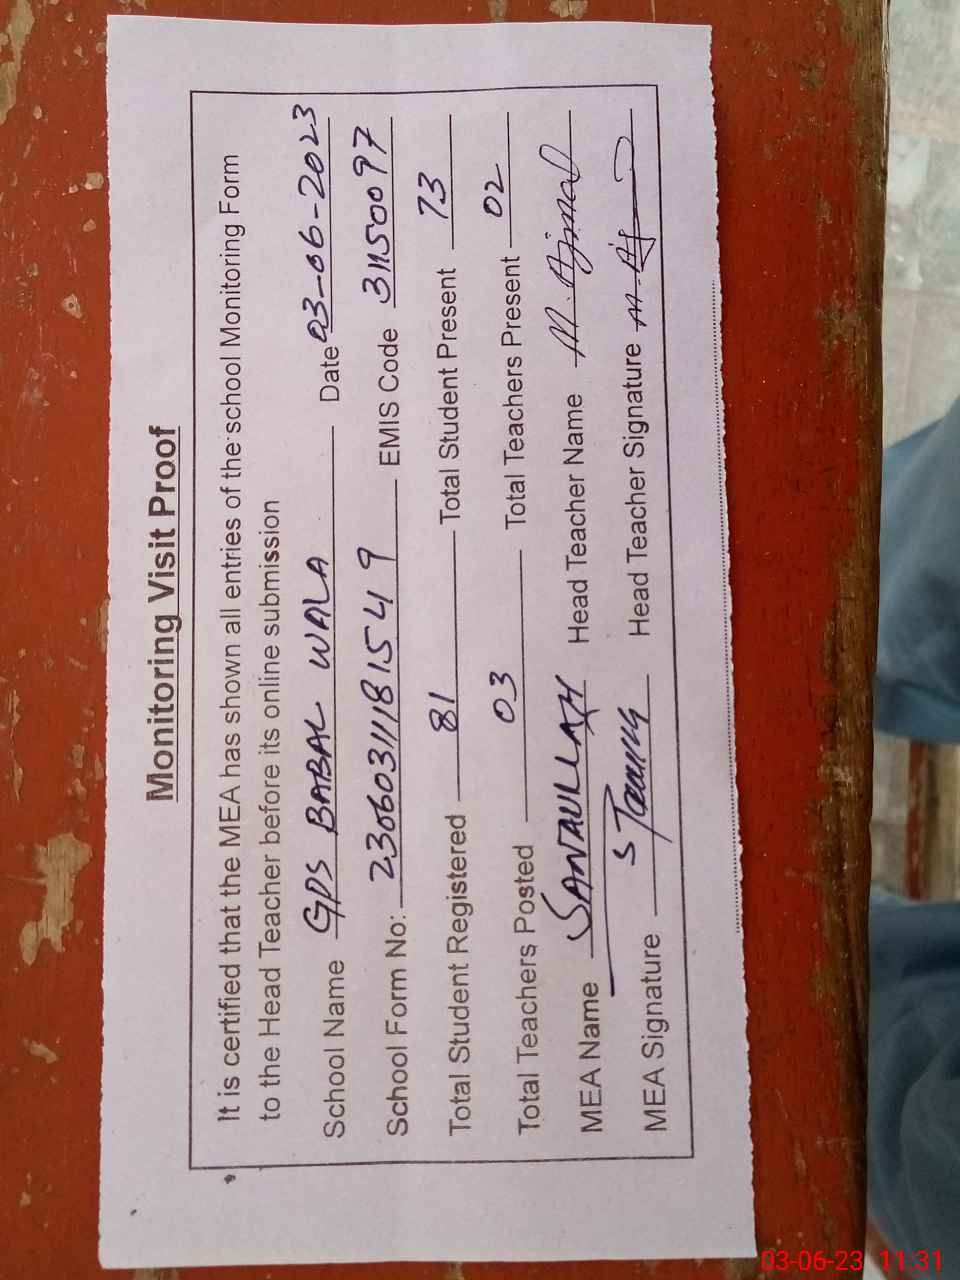 Monitoring Visit Proof
It is certified that the MEA has shown all entries of the school Monitoring Form
to the Head Teacher before its online submission
School Name GPS BABAL WALA Date 03-06-2023
School Form No: 230603111815549 EMIS Code 31150097
Total Student Registered 81 Total Student Present 73
Total Teachers Posted 03 Total Teachers Present 02
MEA Name SANAULLAH Head Teacher Name M. Ajmal
MEA Signature Head Teacher Signature
03-06-23 11:31